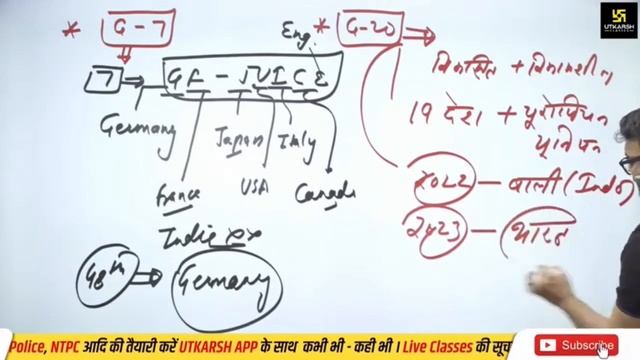 * G-7
7 → GF-JUICE
Eng.
Germany
Japan
Italy
France
USA
Canada
India xx
48th ⇒ Germany
* G-20 ⇒
विकसित + विकासशील
19 देश + यूरोपियन
यूनियन
2022 - बाली (Indo)
2023 - भारत
UTKARSH
CLASSES
Police, NTPC आदि की तैयारी करें UTKARSH APP के साथ कभी भी - कही भी । Live Classes की सूच
Subscribe